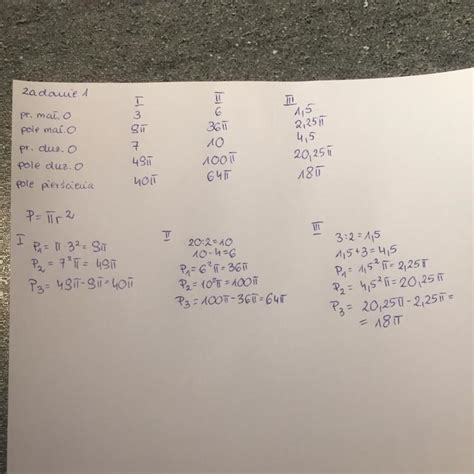 Zadanie 1
I II III
pr. mał. O 3 6 1,5
pole mał. O 9π 36π 2,25π
pr. duż. O 7 10 4,5
pole duż. O 49π 100π 20,25π
pole pierścienia 40π 64π 18π
P = πr²
I
P₁ = π 3² = 9π
P₂ = 7²π = 49π
P₃ = 49π - 9π = 40π
II
20:2=10
10-4=6
P₁ = 6²π = 36π
P₂ = 10²π = 100π
P₃ = 100π - 36π = 64π
III
3:2=1,5
1,5+3=4,5
P₁ = 1,5²π = 2,25π
P₂ = 4,5²π = 20,25π
P₃ = 20,25π - 2,25π =
= 18π